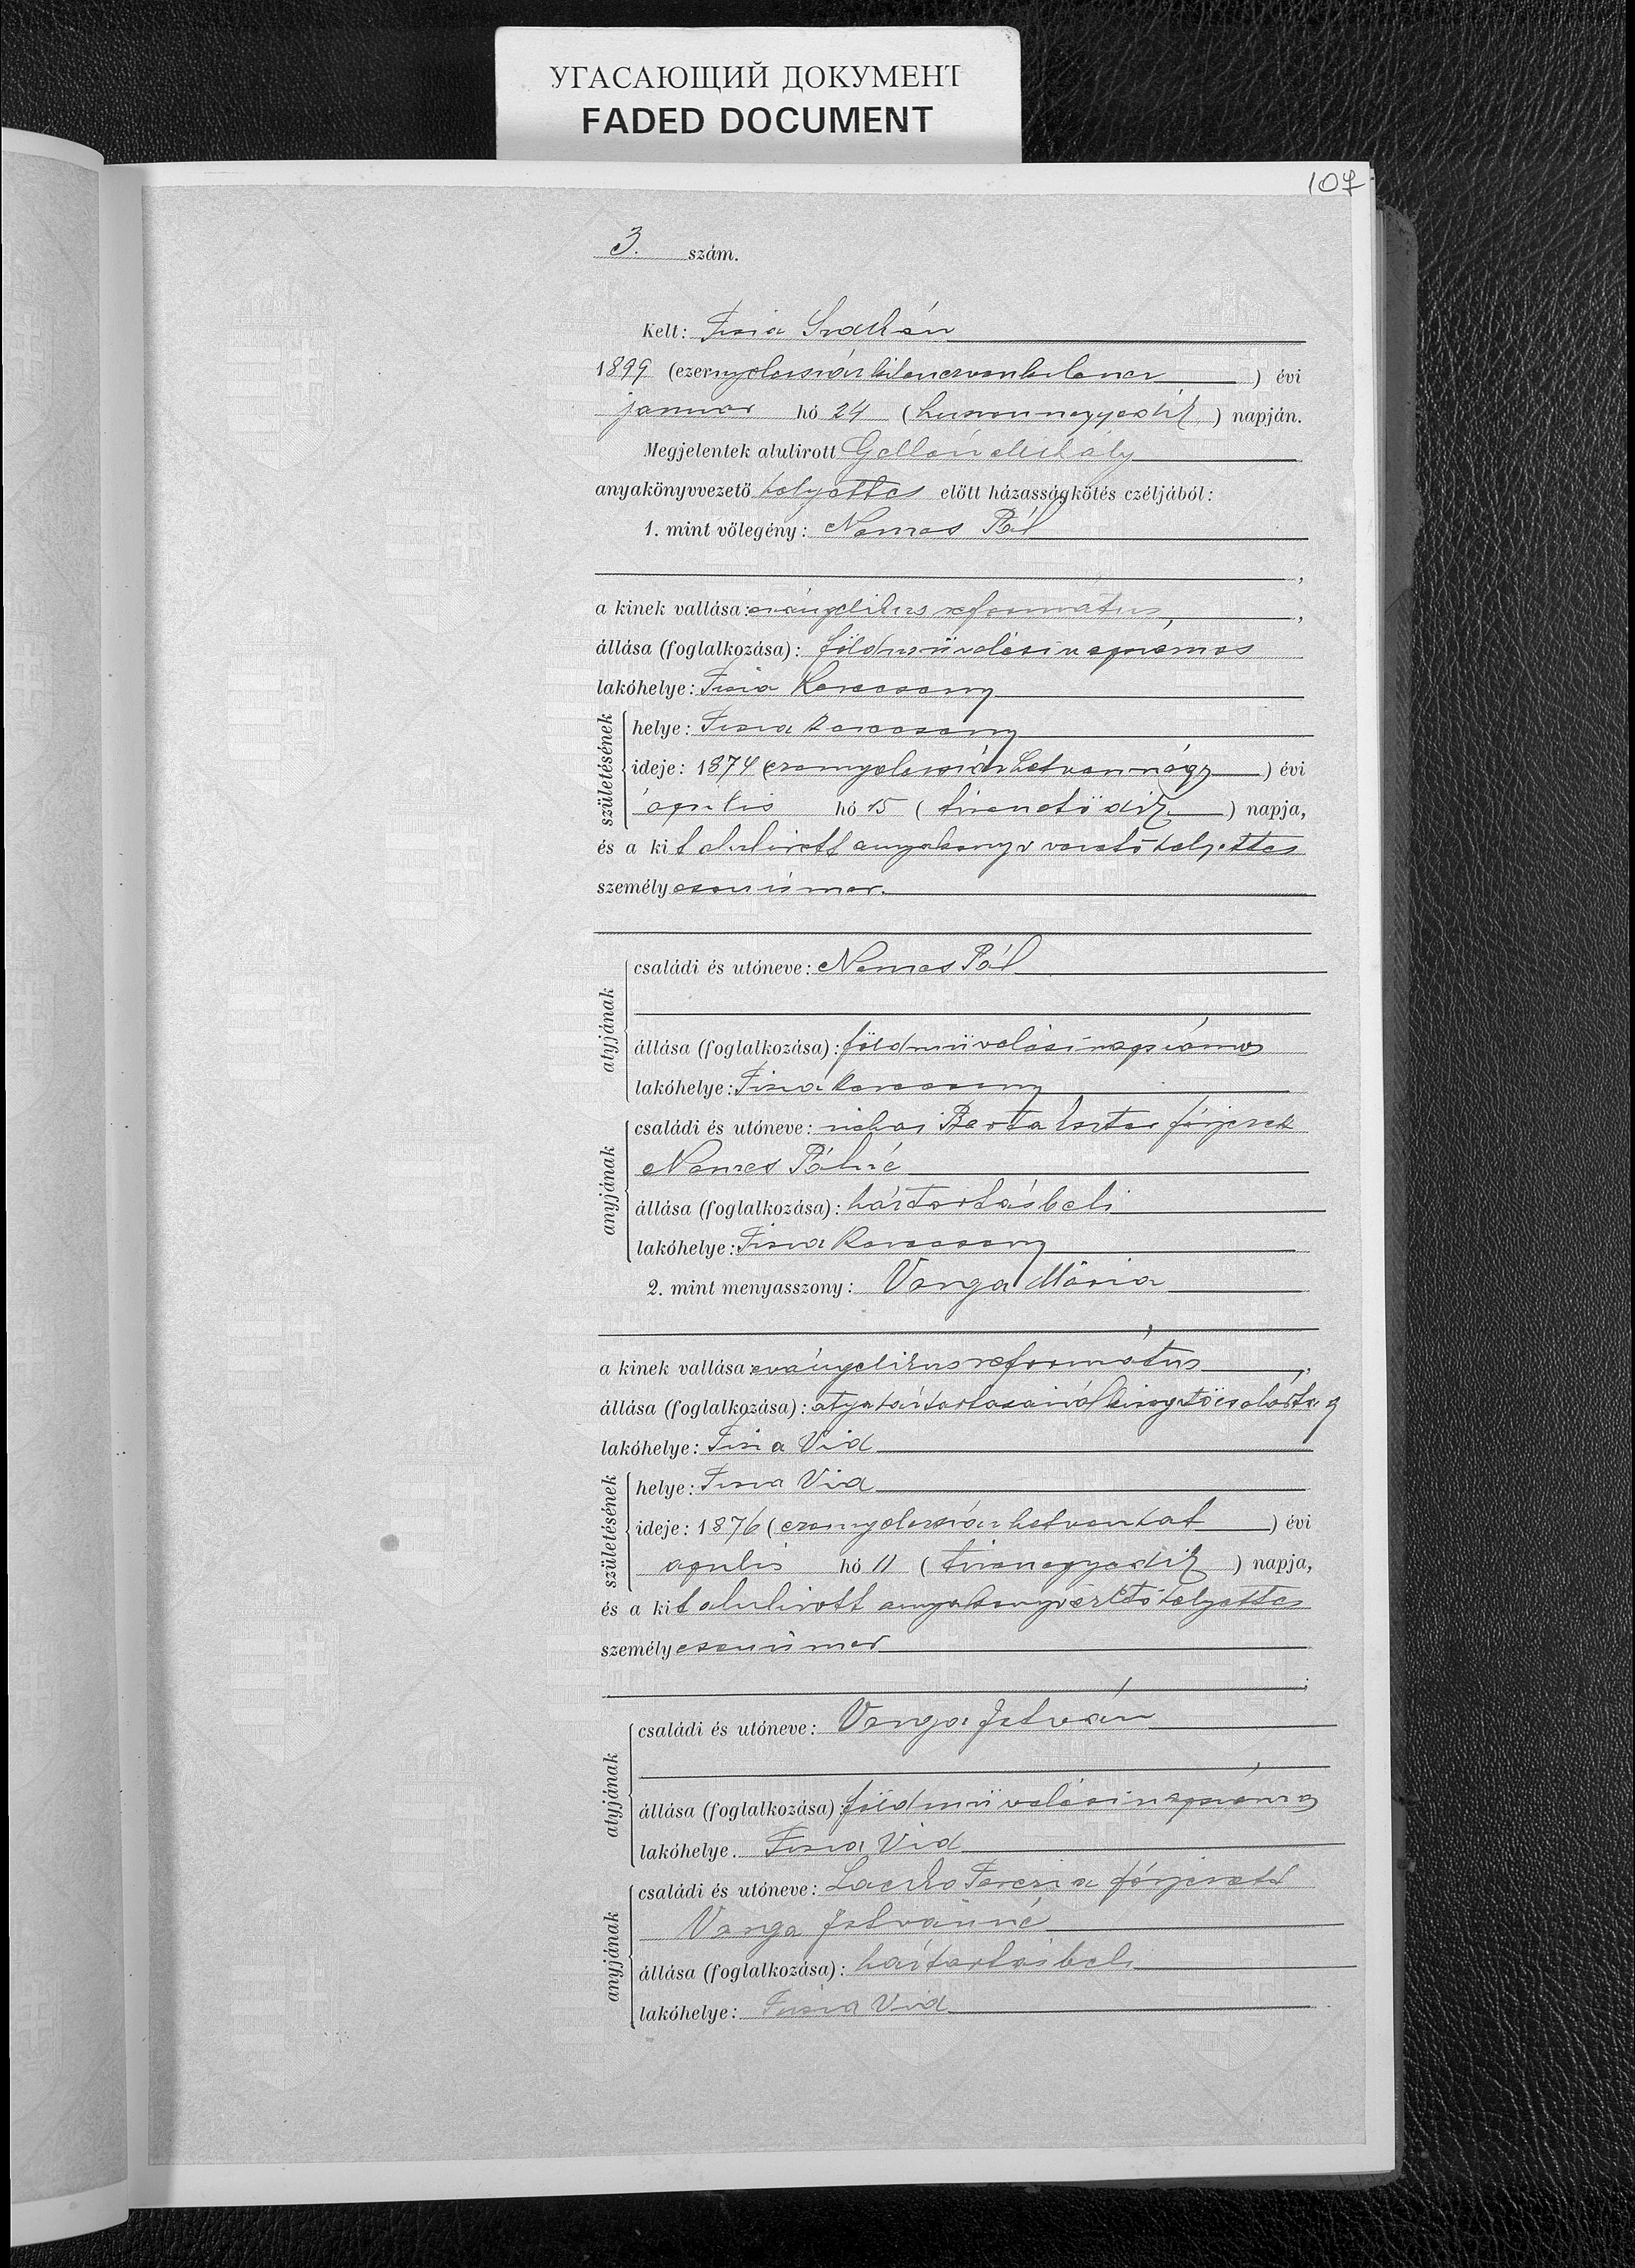 УГАСАЮЩИЙ ДОКУМЕНТ
FADED DOCUMENT
107
3. szám.
Kelt: Tisza
1899 (ezernyolcszázkilenczvenkilencz) évi
januar hó 24 (huszonnegyedik) napján.
Megjelentek alulirott Gellén Mihály
anyakönyvvezető helyettes előtt házasságkötés czéljából:
1. mint vőlegény: Nemes Pál
a kinek vallása: evángelikus református,
állása (foglalkozása): földmüvelési napszámos
lakóhelye: Tisza Keresceny
születésének
helye: Tisza Keresceny
ideje: 1874 (ezernyolcszázhetvennégy) évi
április hó 15 (tizenötödik) napja,
és a kit alulirott anyakönyvvezető helyettes
személyesen ismer.
atyjának
családi és utóneve: Nemes Pál
állása (foglalkozása): földmüvelési napszámos
lakóhelye: Tisza
anyjának
családi és utóneve: Barta Eszter férjezett
Nemes Pálné
állása (foglalkozása): háztartásbeli
lakóhelye: Tisza
2. mint menyasszony: Varga Mária
a kinek vallása: evángelikus református,
állása (foglalkozása): atya háztartásainál kisegitö családtag
lakóhelye: Tisza Vid
születésének
helye: Tisza Vid
ideje: 1876 (ezernyolcszázhetvenhat) évi
április hó 11 (tizenegyedik) napja,
és a kit alulirott anyakönyvvezető helyettes
személyesen ismer
atyjának
családi és utóneve: Varga István
állása (foglalkozása): földmüvelési napszámos
lakóhelye. Tisza Vid
anyjának
családi és utóneve: Laczko Terezia férjezett
Varga Istvánné
állása (foglalkozása): háztartásbeli
lakóhelye: Tisza Vid